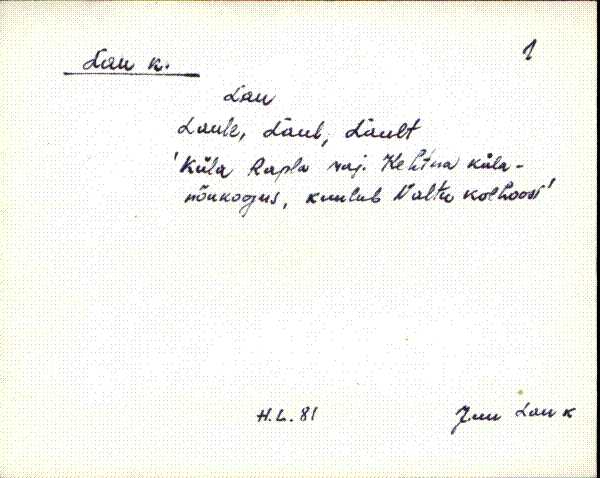 Lau k.
1
Lau
Laule, Laul, Lault
'Küla Rapla raj. Kehtna küla-
nõukogus, kuulub Valtu kolhoosi'
H.L. 81
Juu Lau k